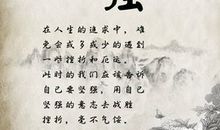 强
在人生的追求中，难
免会或多或少的遇到
一些挫折和厄运，告诉
面对的我们应该用
自己要坚强，用自己
坚强的意志去战胜
挫折，毫不气馁。